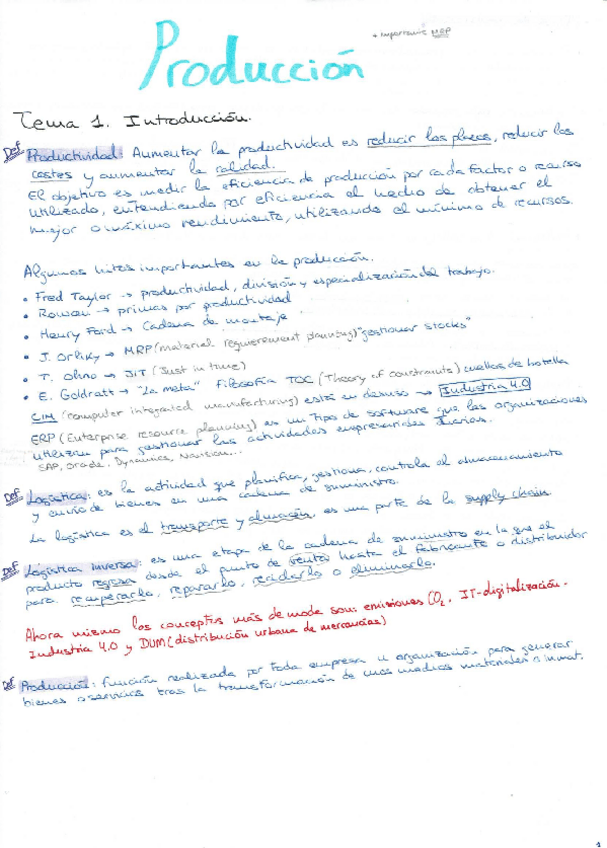 + importante MRP
Producción
Tema 1. Introducción.
Def Productividad: Aumentar la productividad es reducir los plazos, reducir los
costes y aumentar la calidad.
El objetivo es medir la eficiencia de producción por cada factor o recurso
utilizado, entendiendo por eficiencia el hecho de obtener el
mejor o máximo rendimiento, utilizando el mínimo de recursos.
Algunos hitos importantes en la producción.
• Fred Taylor → productividad, división y especialización del trabajo.
• Rowan → primas por productividad
• Henry Ford → Cadena de montaje
• J. Orliky → MRP (material requierement planning) "gestionar stocks"
• T. Ohno → JIT (Just in time)
• E. Goldratt → "La meta" Filosofía TOC (Theory of constraints) cuellos de botella
CIM (computer integrated manufacturing) está en desuso → Industria 4.0
ERP (Enterprise resource planning) es un tipo de software que las organizaciones
utilizan para gestionar las actividades empresariales diarias.
SAP, Oracle, Dynamics, Navision...
Def Logística: es la actividad que planifica, gestiona, controla el almacenamiento
y envío de bienes en una cadena de suministro.
La logística es el transporte y almacén, es una parte de la supply chain
Def Logística Inversa: es una etapa de la cadena de suministro en la que el
producto regresa desde el punto de venta hasta el fabricante o distribuidor
para recuperarlo, repararlo, reciclarlo o eliminarlo.
Ahora mismo los conceptos más de moda son: emisiones CO2, IT-digitalización.
Industria 4.0 y DUM (distribución urbana de mercancías)
Def Producción: función realizada por toda empresa u organización para generar
bienes o servicios tras la transformación de unos medios materiales o inmat.
1